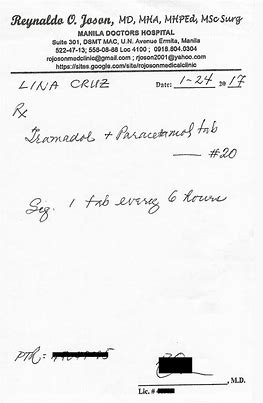 Reynaldo O. Joson, MD, MHA, MHPEd, MSc Surg
MANILA DOCTORS HOSPITAL
Suite 301, DSMT MAC, U.N. Avenue Ermita, Manila
522-47-13; 558-08-88 Loc 4100 ; 0918.804.0304
rojosonmedclinic@gmail.com ; rjoson2001@yahoo.com
https://sites.google.com/site/rojosonmedicalclinic
LINA CRUZ Date: 1-24 2017
Rx
Tramadol + Paracetamol tab
— #20
Sig. 1 tab every 6 hours
PTR:
, M.D.
Lic. #